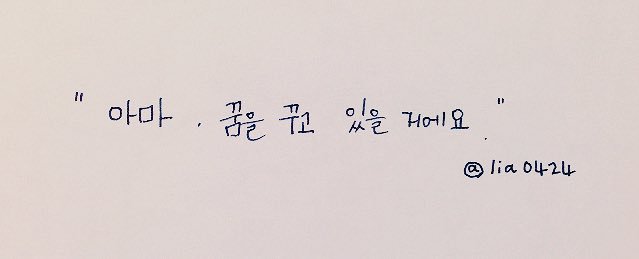 "아마. 꿈을 꾸고 있을 거에요."
@lia0424